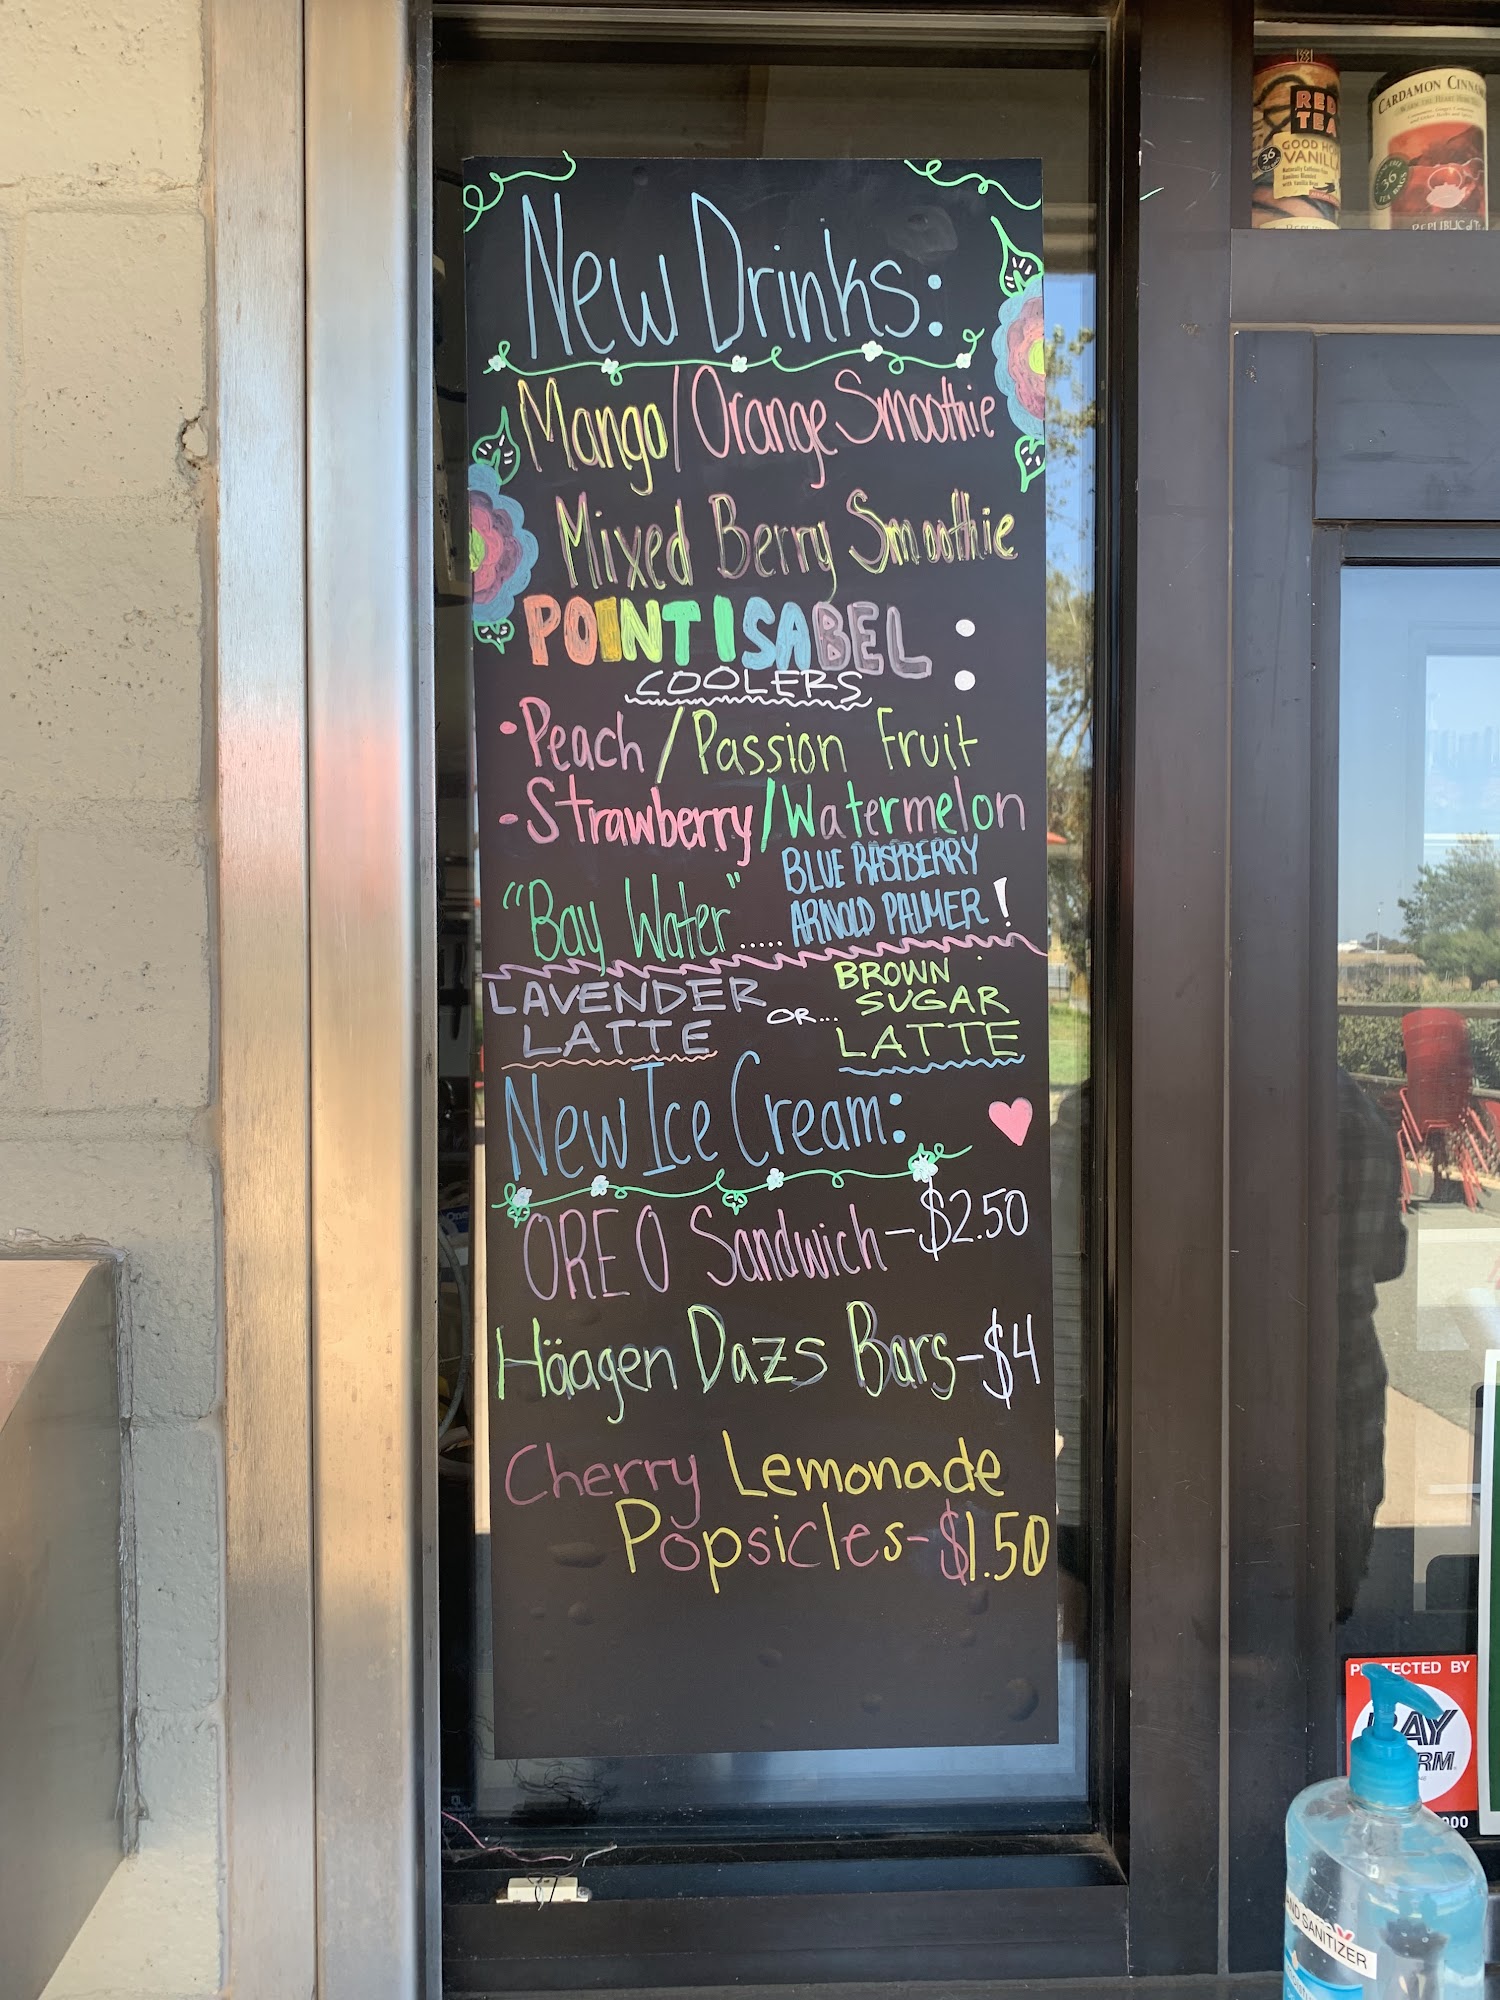 New Drinks:
Mango/Orange Smoothie
Mixed Berry Smoothie
POINT ISABEL :
COOLERS
• Peach / Passion Fruit
• Strawberry/Watermelon
"Bay Water" ..... BLUE RASPBERRY
ARNOLD PALMER !
LAVENDER
LATTE
OR...
BROWN
SUGAR
LATTE
New Ice Cream:
OREO Sandwich - $2.50
Häagen Dazs Bars - $4
Cherry Lemonade
Popsicles - $1.50
RED
TEA
GOOD
VANILL
36
CARDAMON CINNA
36
TEA BAGS
PROTECTED BY
BAY
SANITIZER